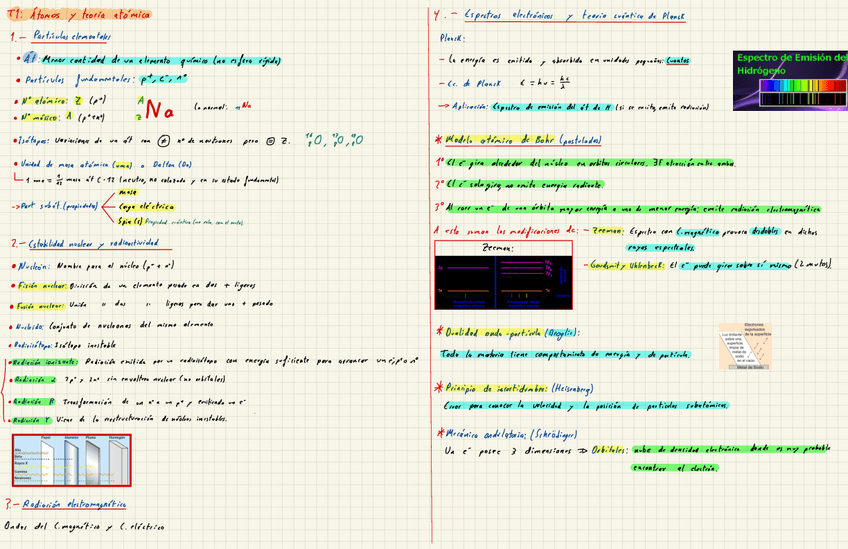 T1: Átomos y teoría atómica
1.- Partículas elementales
• Át: Menor cantidad de un elemento químico (no esfera rígida)
• Partículas fundamentales: p⁺, e⁻, n⁰
• Nº atómico: Z (p⁺)
• Nº másico: A (p⁺+n⁰)
A
Z
Na
(o normal: ₁₁Na)
• Isótopos: Variaciones de un át con ≠ nº de neutrones pero = Z. ¹⁶₈O, ¹⁷₈O, ¹⁸₈O
• Unidad de masa atómica (uma) o Dalton (Da)
1 uma = 1/12 masa át C-12 (neutro, no enlazado y en su estado fundamental)
→ Part subát. (propiedades)
masa
Carga eléctrica
Spin (s) Propiedad cuántica (no rela. con el resto)
2.- Estabilidad nuclear y radioactividad
• Nucleón: Nombre para el núcleo (p⁺ + n⁰)
• Fisión nuclear: División de un elemento pesado en dos + ligeros
• Fusión nuclear: Unión " dos " ligeros para dar uno + pesado
• Nucleido: Conjunto de nucleones del mismo elemento
• Radioisótopo: Isótopo inestable
• Radiación ionizante: Radiación emitida por un radioisótopo con energía suficiente para arrancar un e⁻, p⁺ o n⁰
• Radiación α 2p⁺ y 2n⁰ sin envoltura nuclear (no orbitales)
• Radiación β Transformación de un n⁰ a un p⁺ y emitiendo un e⁻
• Radiación γ Viene de la reestructuración de núcleos inestables.
Papel Aluminio Plomo Hormigón
Alfa
Beta
Rayos X
Gamma
Neutrones
3.- Radiación electromagnética
Ondas del C. magnético y C. eléctrico
4.- Espectros electrónicos y teoría cuántica de Planck
Planck:
- La energía es emitida y absorbida en unidades pequeñas: Cuantos
- Ec. de Planck E = hν = hc/λ
→ Aplicación: Espectro de emisión del át de H (si se excita, emite radiación)
Espectro de Emisión del
Hidrógeno
* Modelo atómico de Bohr (postulados)
1º El e⁻ gira alrededor del núcleo en órbitas circulares. ∃F atracción entre ambos.
2º El e⁻ solo gira, no emite energía radiante.
3º Al caer un e⁻ de una órbita mayor energía a una de menor energía: emite radiación electromagnética
A esto suman las modificaciones de: - Zeeman: Espectro con C. magnético provoca desdobles en dichas
rayas espectrales.
Zeeman:
- Goudsmit y Uhlenbeck: El e⁻ puede girar sobre sí mismo (2 modos).
* Dualidad onda-partícula (Broglie):
Toda la materia tiene comportamiento de energía y de partícula.
Electrones
expulsados
de la superficie
Luz brillante
sobre una
superficie
limpia de
metal de
sodio
en el vacío
Metal de Sodio
* Principio de incertidumbre: (Heisenberg)
Error para conocer la velocidad y la posición de partículas subatómicas.
* Mecánica ondulatoria: (Schrödinger)
Un e⁻ posee 3 dimensiones ⇒ Orbitales: nube de densidad electrónica donde es muy probable
encontrar al electrón.